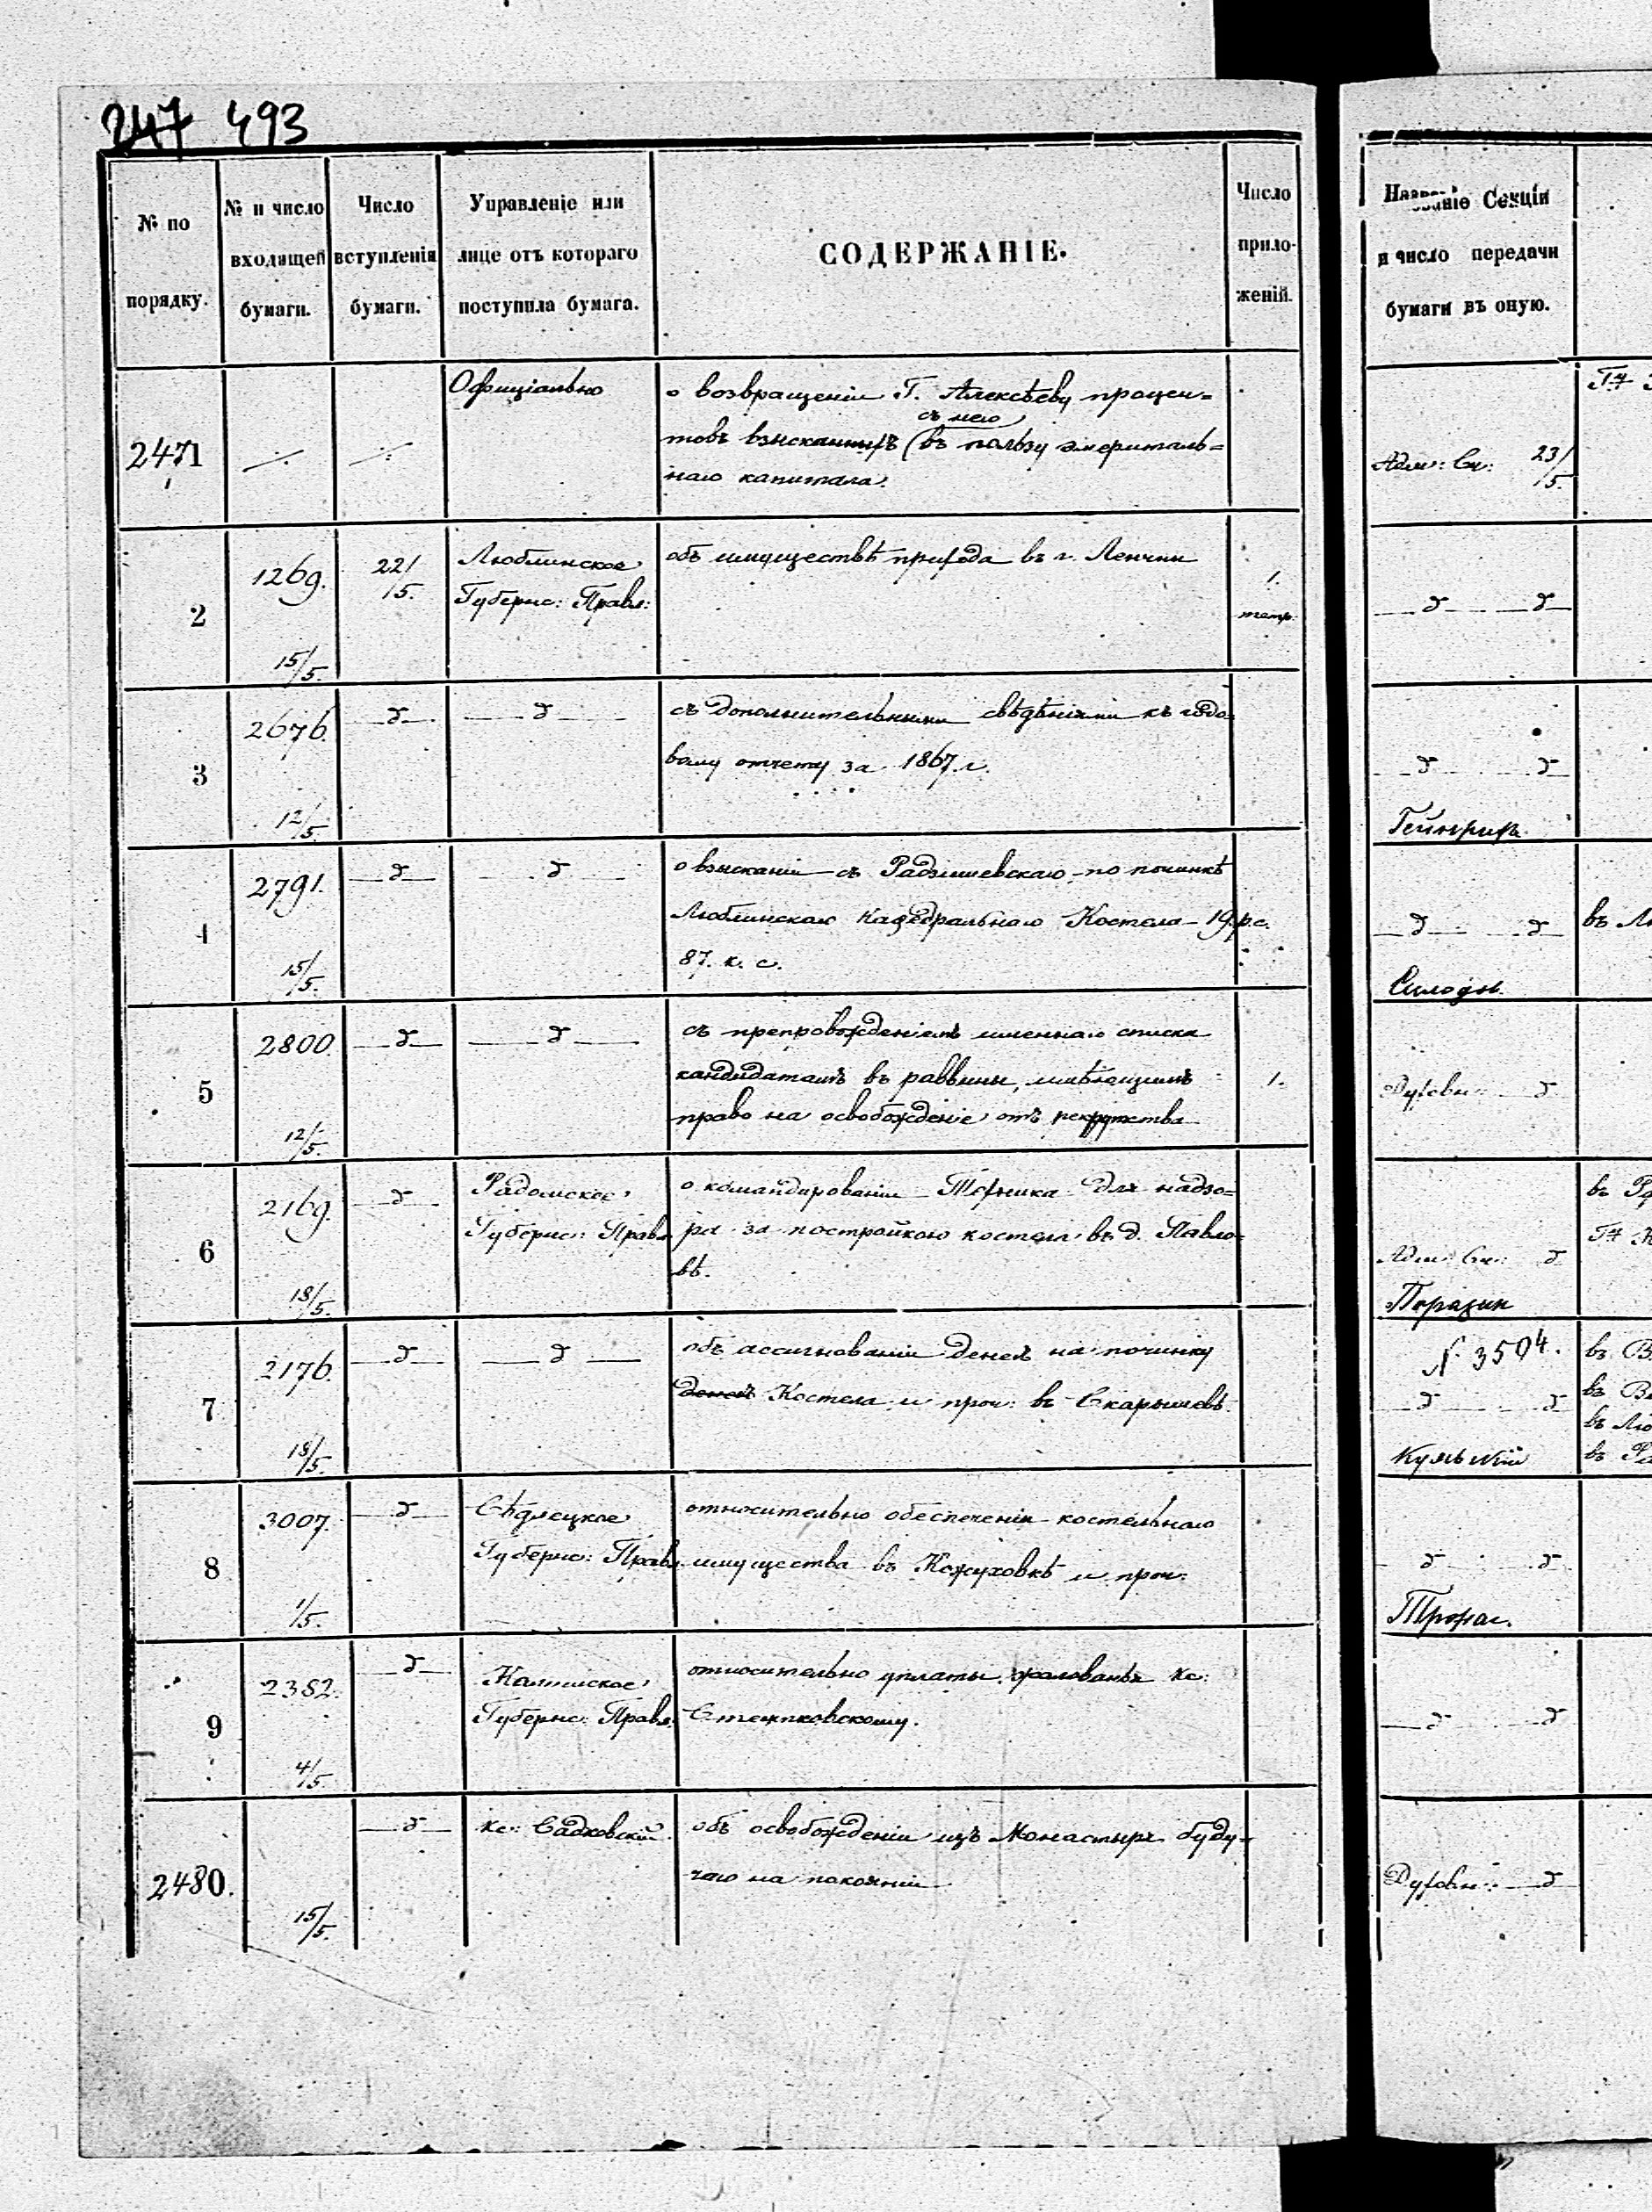 247 493
№ по порядку.
№ и число входящей бумаги.
Число вступленія бумаги.
Управленіе или лице отъ котораго поступила бумага.
СОДЕРЖАНІЕ.
Число прило-женій.
Названіе Секціи и число передачи бумаги въ оную.
2471
Официіально
о возвращеніи Г. Алексѣеву процен=
съ него
товъ взысканныхъ (въ пользу эмериталь=
наго капитала.
Адм: Ск: 23/5.
2
1269.
15/5.
22/5.
Люблинское
Губернс: Правл:
объ имуществѣ прихода въ г. Ленчни
1.
тетр.
д д
3
2676.
12/5.
д
д
съ дополнительными свѣдѣніями къ годо-
вому отчету за 1867 г.
д д
4
2791.
15/5.
д
д
о взысканіи съ Радзишевскаго по починкѣ
Люблинскаго Кафедральнаго Костела 19 р. с.
87. к. с.
д д
въ
5
2800.
12/5.
д
д
съ препровожденіемъ именнаго списка
кандидатамъ въ раввины, имѣющимъ
право на освобожденіе отъ рекрутства
1.
Духовн: д
6
2169.
18/5.
д
Радомское
Губернс: Правл
о командированіи Техника для надзо=
ра за постройкою костела въ д. Павло-
вѣ.
Адм: Ск: д
Поразин
въ
7
2176.
18/5.
д
д
объ ассигнованіи денегъ на починку
денегъ Костела и проч: въ Скарышевѣ.
№ 3504.
д д
въ В
въ
въ Лю
въ Ра
8
3007.
1/5.
д
Сѣдлецкое
Губернс: Правл
относительно обеспеченія костельнаго
имущества въ Кожуховкѣ и проч:
д д
9
2382.
4/5.
д
Калишское
Губернс: Правл:
относительно уплаты жалованья кс:
Стемпковскому.
д д
2480.
15/5.
д
кс: Садковскій.
объ освобожденіи изъ Монастыря буду-
чаго на покояніи
Духовн: д